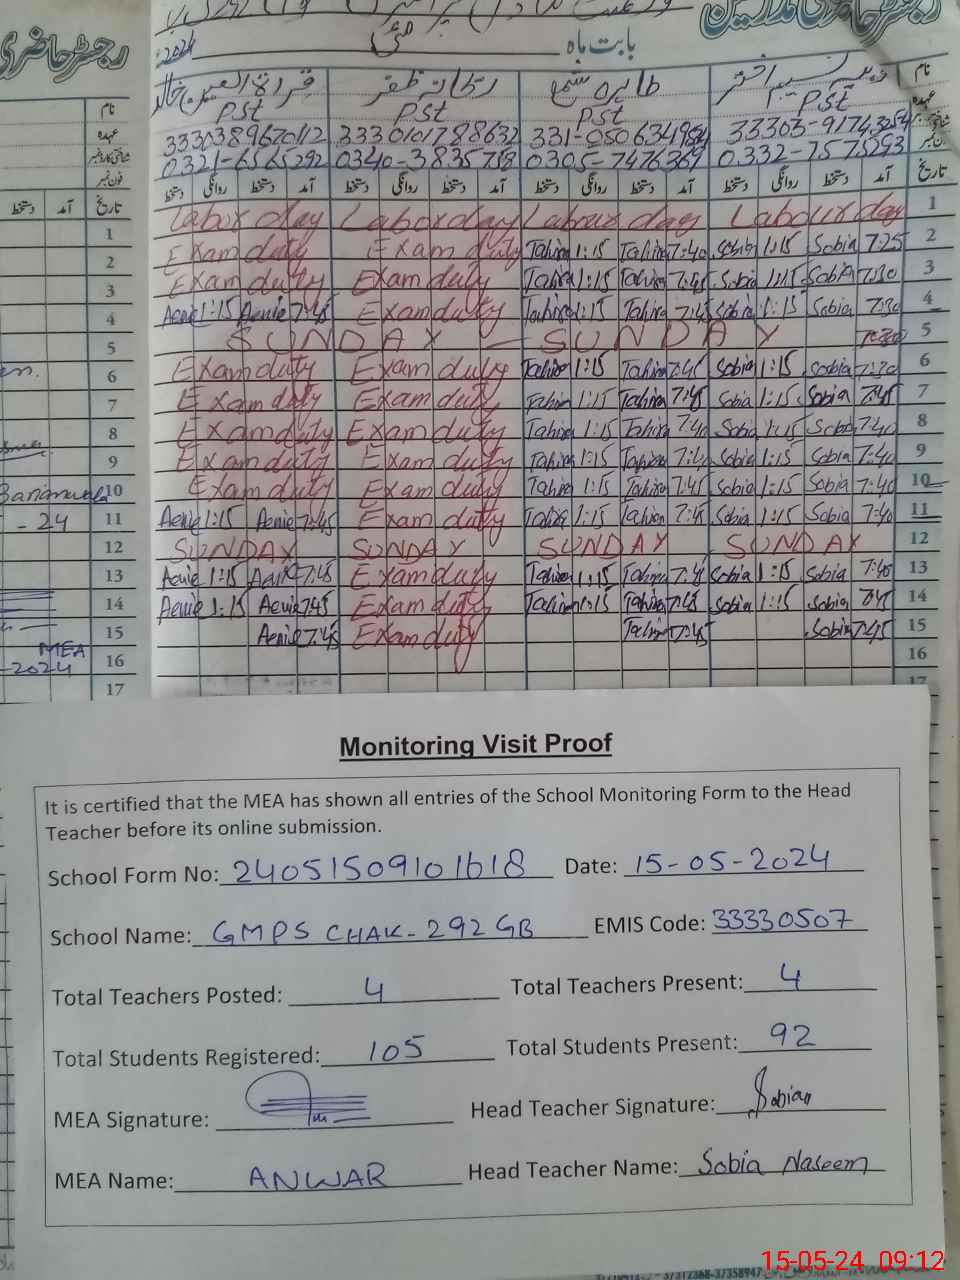 رجسٹر حاضری مدرسین
بابت ماہ مئی 2024
رجسٹر حاضری
نام
عہدہ
PST PST PST PST
3330389670112 3330101788632
0321-6565292 0305-7476369 0332-7575293
تاریخ آمد دستخط روانگی دستخط آمد دستخط روانگی دستخط آمد دستخط روانگی دستخط آمد دستخط روانگی دستخط
1 Labor day Labor day Labour day Labour day 1
2 Exam duty Exam duty Tahira 1:15 Tahira 7:40 Sobia 1:15 Sobia 7:25 2
3 Exam duty Exam duty Tahira 1:15 Tahira 7:45 Sobia 1:15 Sobia 7:30 3
4 Aenie 1:15 Aenie 7:45 Exam duty Tahira 1:15 Tahira 7:45 Sobia 1:15 Sobia 7:30 4
5 SUNDAY - SUNDAY 5
6 Exam duty Exam duty Tahira 1:15 Tahira 7:45 Sobia 1:15 Sobia 7:30 6
7 Exam duty Exam duty Tahira 1:15 Tahira 7:45 Sobia 1:15 Sobia 7:45 7
8 Exam duty Exam duty Tahira 1:15 Tahira 7:40 Sobia 1:15 Sobia 7:40 8
9 Exam duty Exam duty Tahira 1:15 Tahira 7:40 Sobia 1:15 Sobia 7:40 9
10 Exam duty Exam duty Tahira 1:15 Tahira 7:45 Sobia 1:15 Sobia 7:40 10
- 24 11 Aenie 1:15 Aenie 7:45 Exam duty Tahira 1:15 Tahira 7:45 Sobia 1:15 Sobia 7:40 11
12 SUNDAY SUNDAY SUNDAY SUNDAY 12
13 Aenie 1:15 Aenie 7:45 Exam duty Tahira 1:15 Tahira 7:45 Sobia 1:15 Sobia 7:40 13
14 Aenie 1:15 Aenie 7:45 Exam duty Tahira 1:15 Tahira 7:45 Sobia 1:15 Sobia 7:45 14
15 Aenie 7:45 Exam duty Tahira 7:45 Sobia 7:45 15
MEA
-2024 16 16
17 17
Monitoring Visit Proof
It is certified that the MEA has shown all entries of the School Monitoring Form to the Head
Teacher before its online submission.
School Form No: 24051509101618 Date: 15-05-2024
School Name: GMPS CHAK-292 GB EMIS Code: 33330507
Total Teachers Posted: 4 Total Teachers Present: 4
Total Students Registered: 105 Total Students Present: 92
MEA Signature: Head Teacher Signature: Sobian
MEA Name: ANWAR Head Teacher Name: Sobia Naseem
15-05-24 09:12